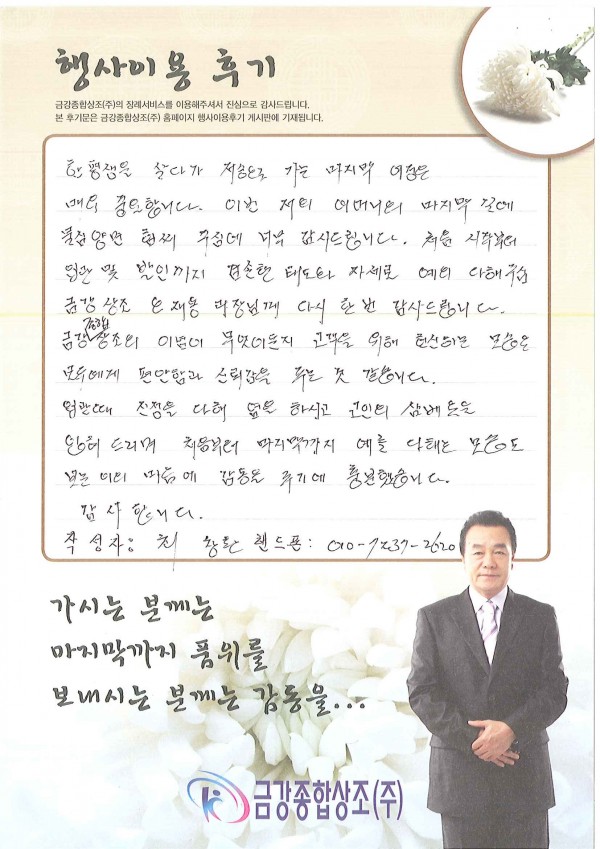 행사이용 후기
금강종합상조(주)의 장례서비스를 이용해주셔서 진심으로 감사드립니다.
본 후기문은 금강종합상조(주) 홈페이지 행사이용후기 게시판에 기재됩니다.
한평생을 살다가 저승으로 가는 마지막 여정은
매우 중요합니다. 이번 저희 어머니의 마지막 길에
물심양면 힘써 주심에 너무 감사드립니다. 처음 시작부터
입관 및 발인까지 겸손한 태도와 자세로 예의 다해주신
금강 상조 은재용 팀장님께 다시 한번 감사드립니다.
금강종합상조의 이념이 무엇이든지 고객을 위해 헌신하는 모습은
모두에게 편안함과 신뢰감을 주는 것 같습니다.
입관때 진정을 다해 염을 하시고 고인의 삼베옷을
입혀 드리며 처음부터 마지막까지 예를 다하는 모습도
보는 이의 마음에 감동을 주기에 충분했습니다.
감사합니다.
작성자: 최 핸드폰: 010-7237-2620
가시는 분께는
마지막까지 품위를
보내시는 분께는 감동을...
금강종합상조(주)